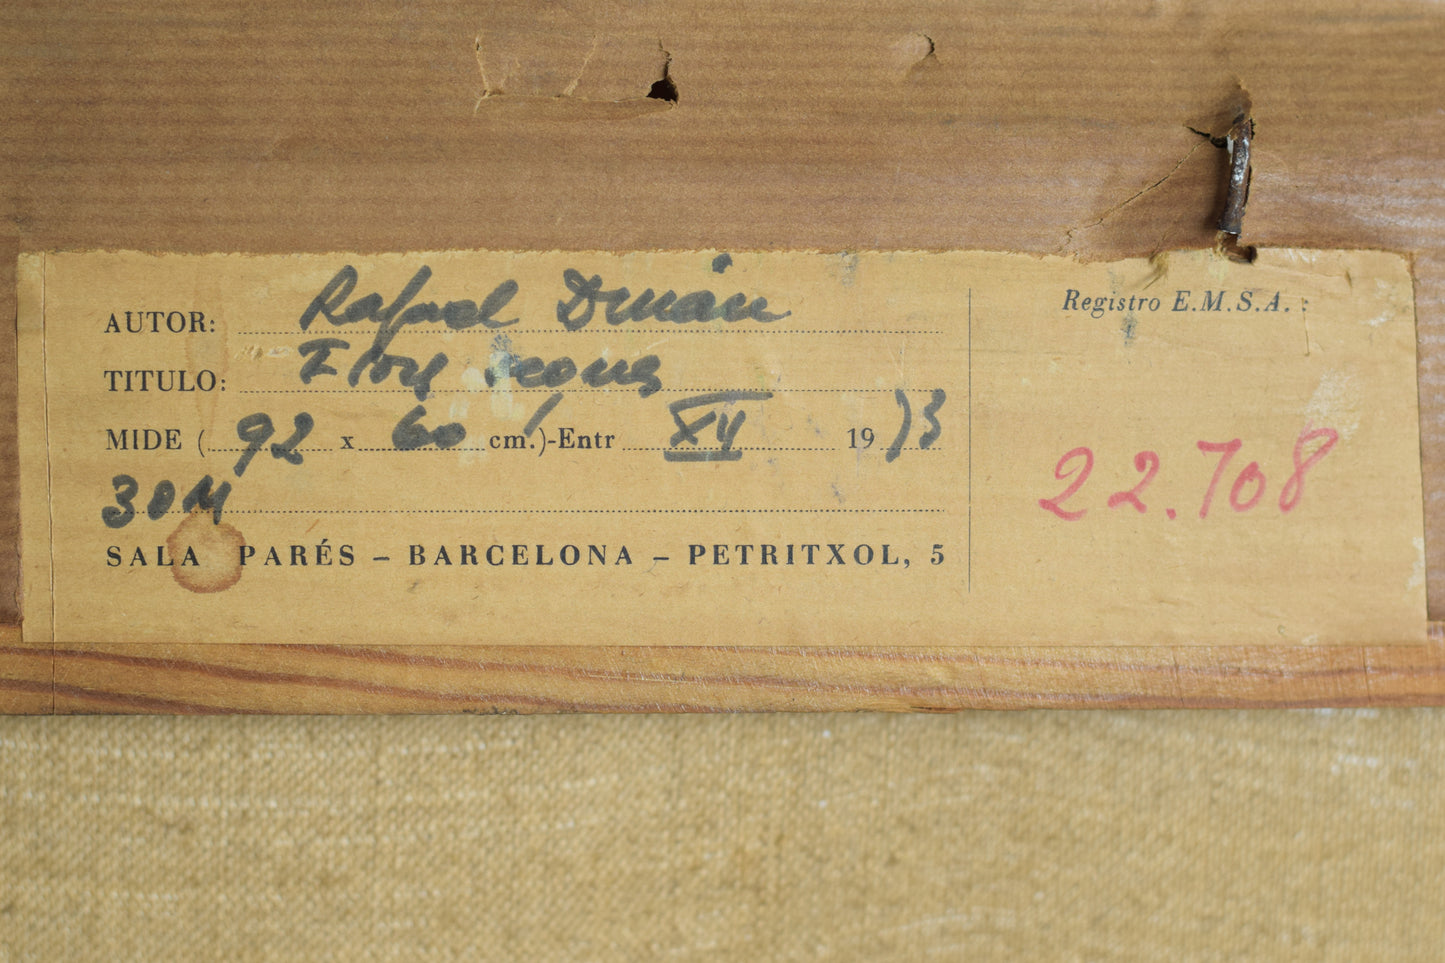 AUTOR: Rafael Durán
TITULO:
MIDE ( 92 x 60 cm.)-Entr XII 1973
30M
SALA PARÉS – BARCELONA – PETRITXOL, 5
Registro E.M.S.A. :
22.708